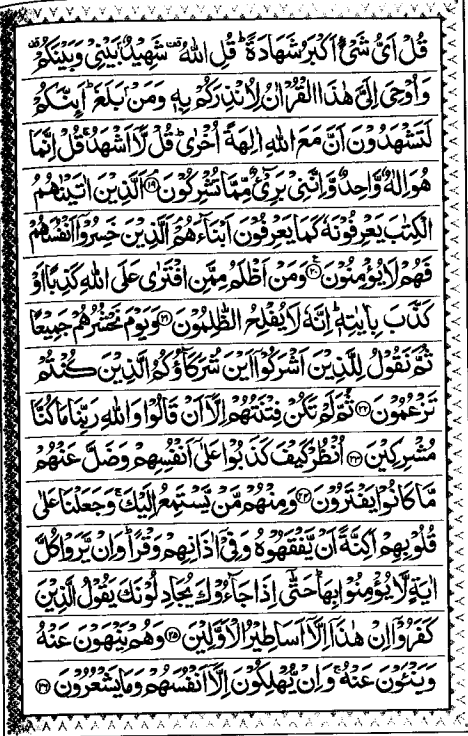 قُلْ اَیُّ شَیْءٍ اَكْبَرُ شَهَادَةً ؕ قُلِ اللّٰهُ ۫ شَهِیْدٌۢ بَیْنِیْ وَبَیْنَكُمْ ۫
وَاُوْحِیَ اِلَیَّ هٰذَا الْقُرْاٰنُ لِاُنْذِرَكُمْ بِهٖ وَمَنْۢ بَلَغَ ؕ اَىِٕنَّكُمْ
لَتَشْهَدُوْنَ اَنَّ مَعَ اللّٰهِ اٰلِهَةً اُخْرٰی ؕ قُلْ لَّاۤ اَشْهَدُ ۚ قُلْ اِنَّمَا
هُوَ اِلٰهٌ وَّاحِدٌ وَّاِنَّنِیْ بَرِیْٓءٌ مِّمَّا تُشْرِكُوْنَ ۝۱۹ اَلَّذِیْنَ اٰتَیْنٰهُمُ
الْكِتٰبَ یَعْرِفُوْنَهٗ كَمَا یَعْرِفُوْنَ اَبْنَآءَهُمْ ۘ اَلَّذِیْنَ خَسِرُوْۤا اَنْفُسَهُمْ
فَهُمْ لَا یُؤْمِنُوْنَ ۝۲۰ وَمَنْ اَظْلَمُ مِمَّنِ افْتَرٰی عَلَی اللّٰهِ كَذِبًا اَوْ
كَذَّبَ بِاٰیٰتِهٖ ؕ اِنَّهٗ لَا یُفْلِحُ الظّٰلِمُوْنَ ۝۲۱ وَیَوْمَ نَحْشُرُهُمْ جَمِیْعًا
ثُمَّ نَقُوْلُ لِلَّذِیْنَ اَشْرَكُوْۤا اَیْنَ شُرَكَآؤُكُمُ الَّذِیْنَ كُنْتُمْ
تَزْعُمُوْنَ ۝۲۲ ثُمَّ لَمْ تَكُنْ فِتْنَتُهُمْ اِلَّاۤ اَنْ قَالُوْا وَاللّٰهِ رَبِّنَا مَا كُنَّا
مُشْرِكِیْنَ ۝۲۳ اُنْظُرْ كَیْفَ كَذَبُوْا عَلٰۤی اَنْفُسِهِمْ وَضَلَّ عَنْهُمْ
مَّا كَانُوْا یَفْتَرُوْنَ ۝۲۴ وَمِنْهُمْ مَّنْ یَّسْتَمِعُ اِلَیْكَ ۚ وَجَعَلْنَا عَلٰی
قُلُوْبِهِمْ اَكِنَّةً اَنْ یَّفْقَهُوْهُ وَفِیْۤ اٰذَانِهِمْ وَقْرًا ؕ وَاِنْ یَّرَوْا كُلَّ
اٰیَةٍ لَّا یُؤْمِنُوْا بِهَا ؕ حَتّٰۤی اِذَا جَآءُوْكَ یُجَادِلُوْنَكَ یَقُوْلُ الَّذِیْنَ
كَفَرُوْۤا اِنْ هٰذَاۤ اِلَّاۤ اَسَاطِیْرُ الْاَوَّلِیْنَ ۝۲۵ وَهُمْ یَنْهَوْنَ عَنْهُ
وَیَنْئَوْنَ عَنْهُ ۚ وَاِنْ یُّهْلِكُوْنَ اِلَّاۤ اَنْفُسَهُمْ وَمَا یَشْعُرُوْنَ ۝۲۶